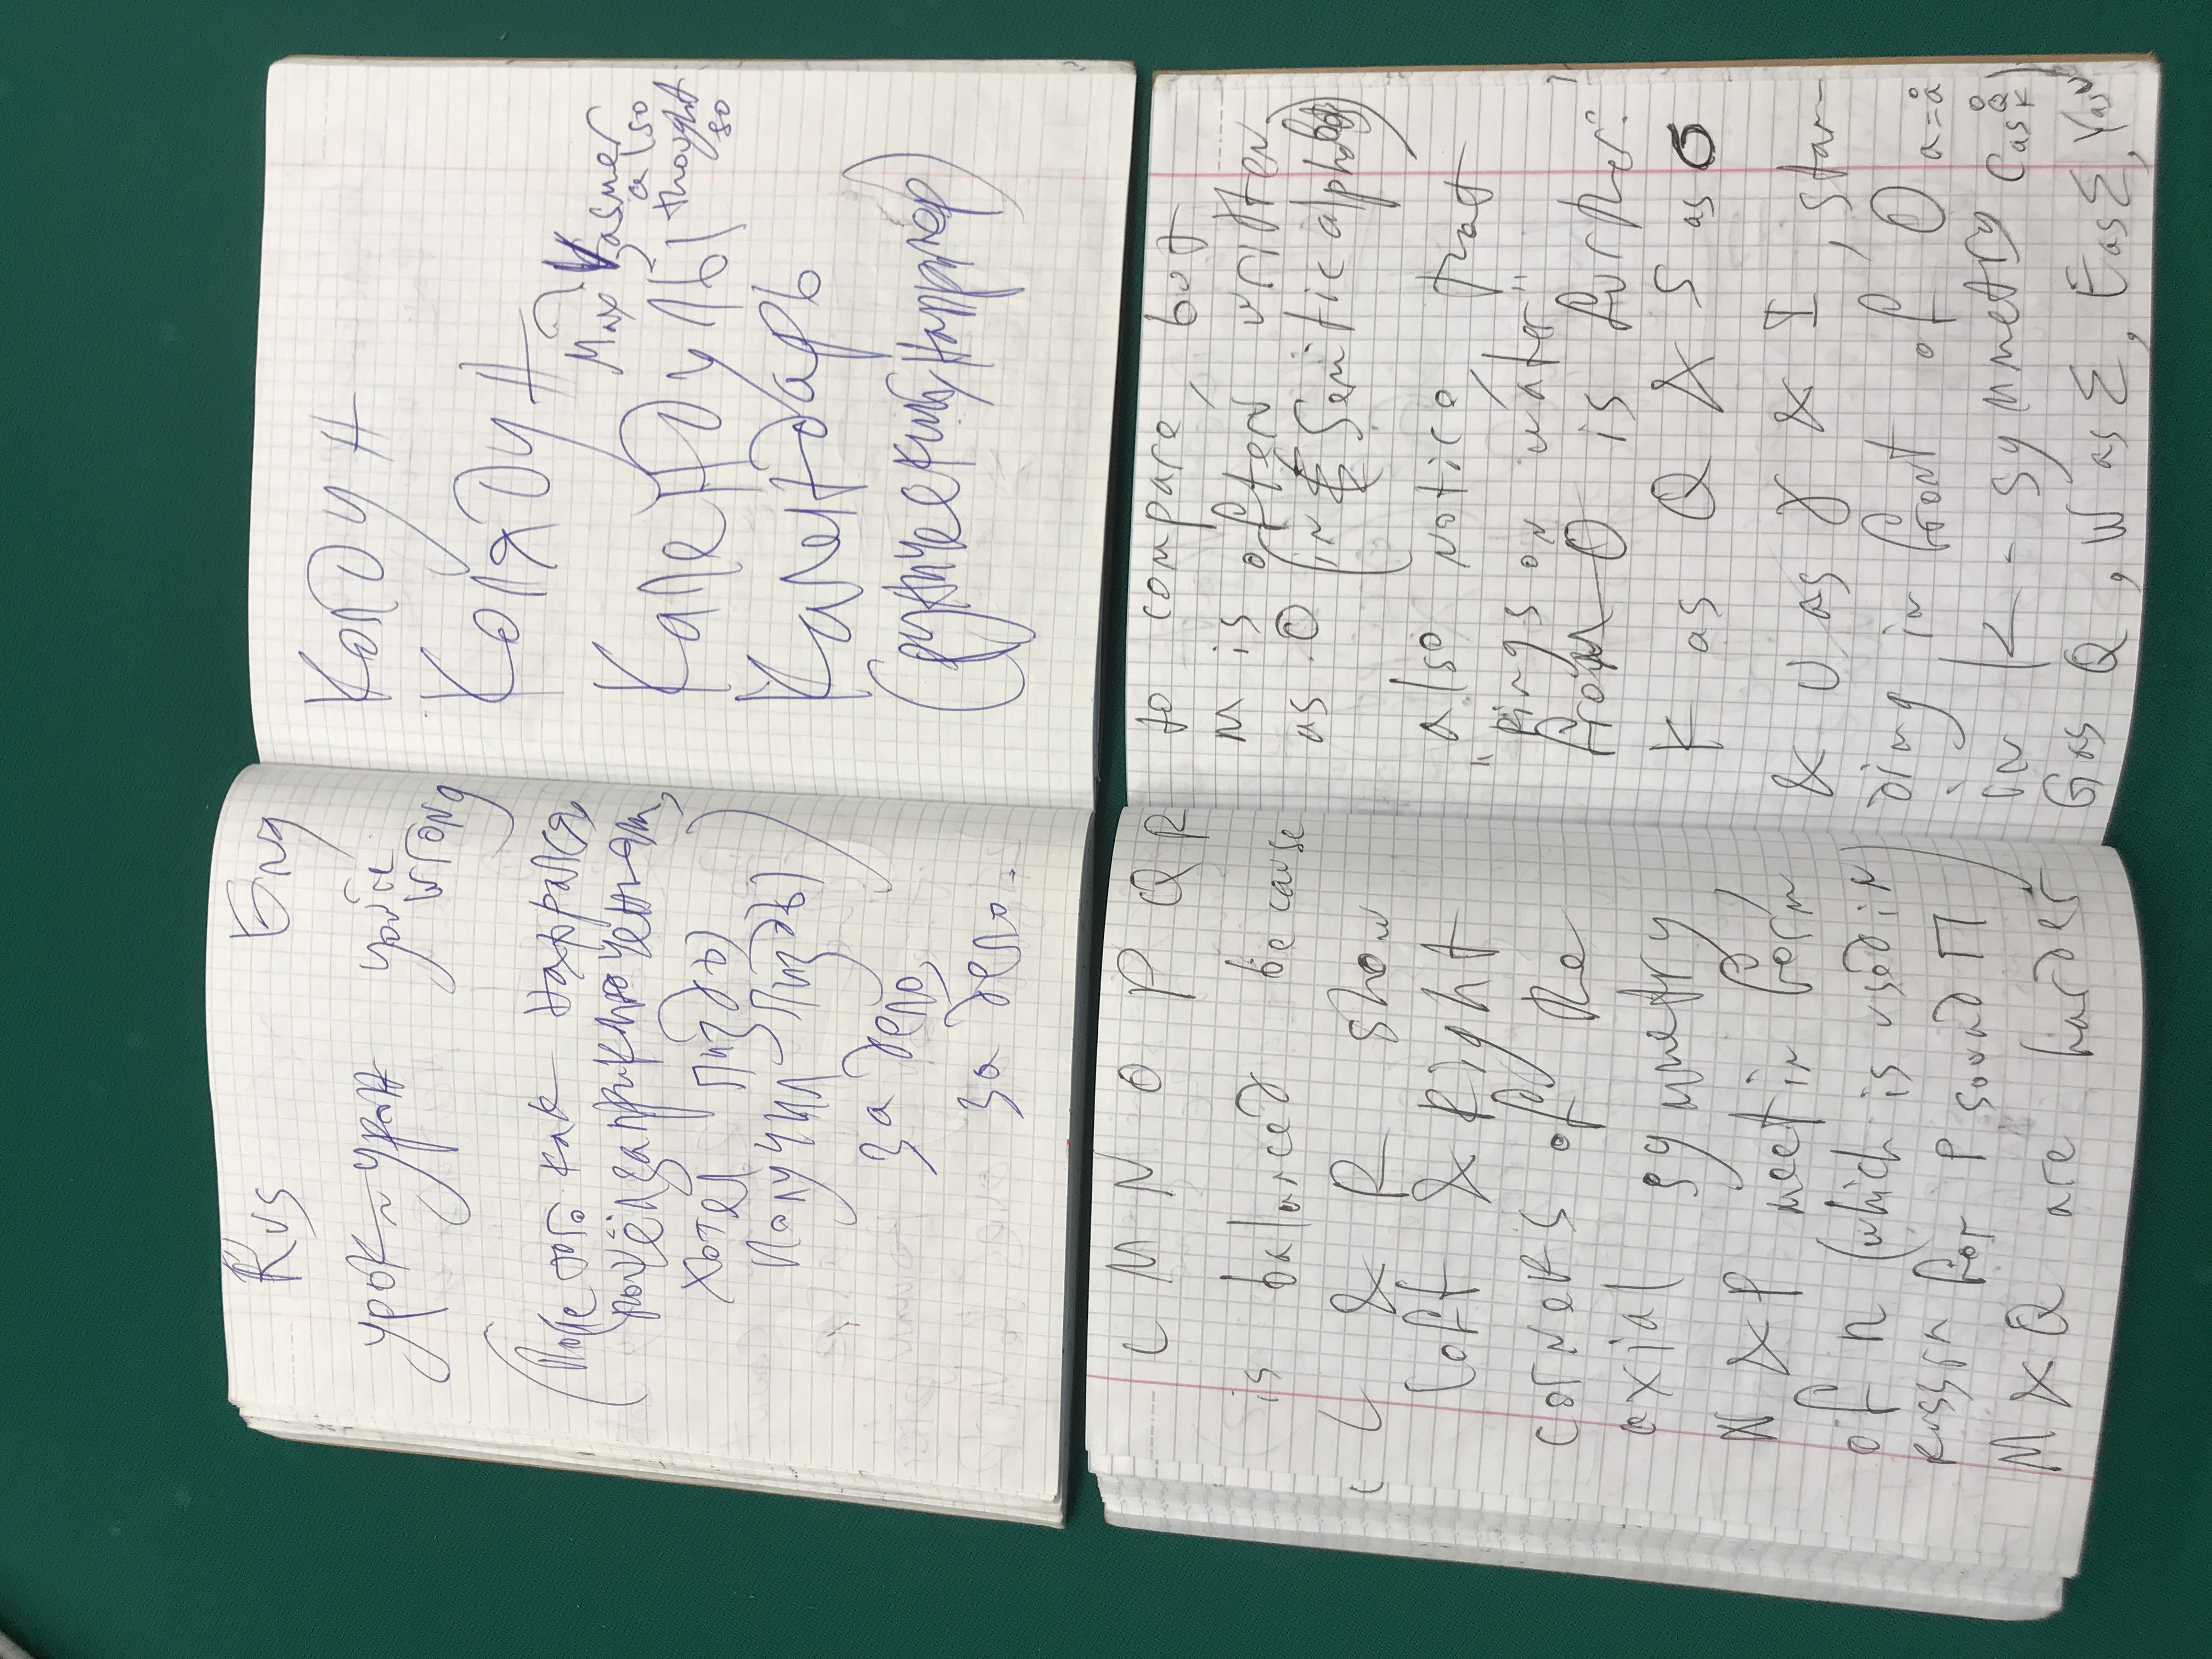 Rus Eng
урок ~ урон you're
wrong
(После того как нахуярился
пошёл за приключениям,
хотел пизды
получил пизды)
за дело,
за дело.
Колдун
Колядун
Max Vasmer
also
thought
so
Календулы
Календарь
(рунический,
L M N O P Q R
is balanced because
L & R show
left & Right
corners of the
axial symmetry,
N & P meet in form
of п (which is used in
russian for P sound П)
M & Q are harder
to compare, but
M is often written
as O (in Semitic alphabets)
also notice, that
"Rings on water"
from O is further:
K as Q & S as σ
& U as & I, stan-
ding in front of O a=å
in K-symmetry C as Q K)
G as Q, W as Σ, E as Σ, Y as